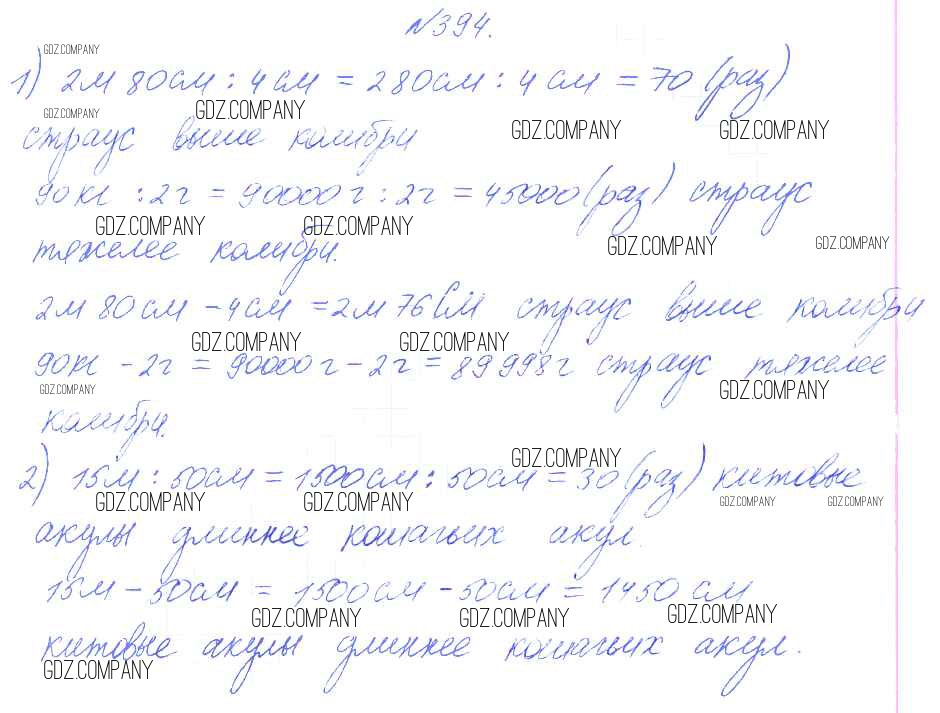 №394.
GDZ.COMPANY
1) 2м 80см : 4см = 280см : 4см = 70 (раз)
GDZ.COMPANY GDZ.COMPANY
страус выше колибри GDZ.COMPANY GDZ.COMPANY
90кг : 2г = 90000г : 2г = 45000 (раз) страус
GDZ.COMPANY GDZ.COMPANY
тяжелее колибри. GDZ.COMPANY GDZ.COMPANY
2м 80см - 4см = 2м 76см страус выше колибри
GDZ.COMPANY GDZ.COMPANY
90кг - 2г = 90000г - 2г = 89998г страус тяжелее
GDZ.COMPANY GDZ.COMPANY
колибри.
GDZ.COMPANY
2) 15м : 50см = 1500см : 50см = 30 (раз) китовые
GDZ.COMPANY GDZ.COMPANY GDZ.COMPANY GDZ.COMPANY
акулы длиннее кошачьих акул.
15м - 50см = 1500см - 50см = 1450 см
GDZ.COMPANY GDZ.COMPANY GDZ.COMPANY
китовые акулы длиннее кошачьих акул.
GDZ.COMPANY